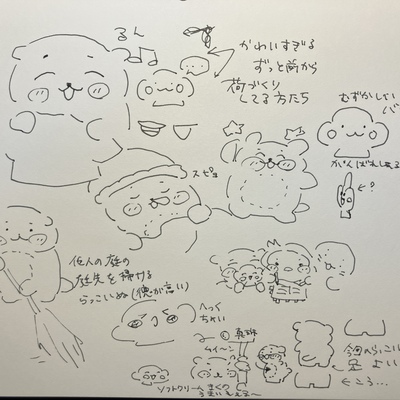 るん
かわいすぎる
ずっと前から
荷づくり
してる方たち
むずかしい
がんばれしゅる
←?
スピョ
他人の庭の
庭先を掃ける
らっこいぬ(徳が高い)
へっく
ちょい
ムイーン
今回のらっこい
足 よい
←ころ…
ソフトクリーム